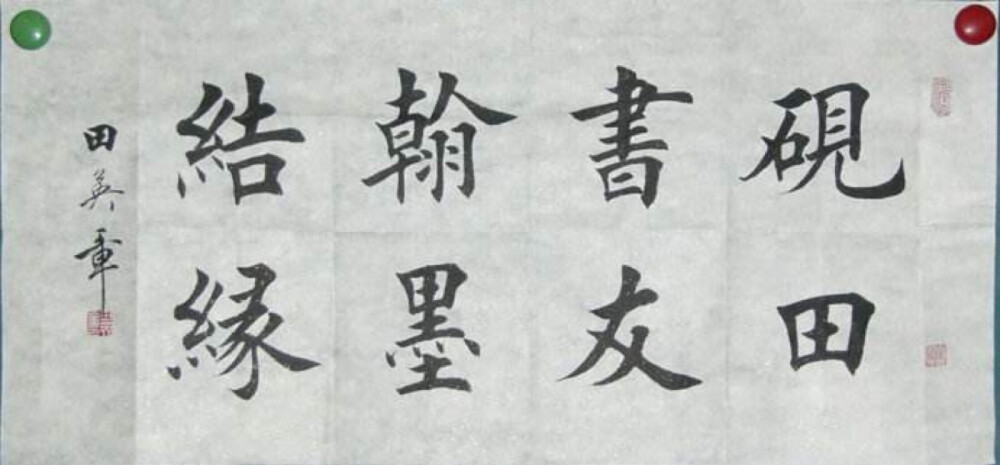 硯田
書友
翰墨
結緣
田英章